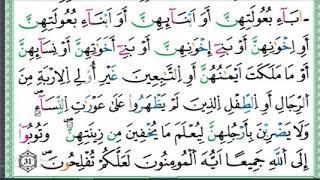 ءَابَآءِ بُعُولَتِهِنَّ أَوْ أَبْنَآئِهِنَّ أَوْ أَبْنَآءِ بُعُولَتِهِنَّ
أَوْ إِخْوَٰنِهِنَّ أَوْ بَنِىٓ إِخْوَٰنِهِنَّ أَوْ بَنِىٓ أَخَوَٰتِهِنَّ أَوْ نِسَآئِهِنَّ
أَوْ مَا مَلَكَتْ أَيْمَٰنُهُنَّ أَوِ ٱلتَّٰبِعِينَ غَيْرِ أُو۟لِى ٱلْإِرْبَةِ مِنَ
ٱلرِّجَالِ أَوِ ٱلطِّفْلِ ٱلَّذِينَ لَمْ يَظْهَرُوا۟ عَلَىٰ عَوْرَٰتِ ٱلنِّسَآءِ
وَلَا يَضْرِبْنَ بِأَرْجُلِهِنَّ لِيُعْلَمَ مَا يُخْفِينَ مِن زِينَتِهِنَّ وَتُوبُوٓا۟
إِلَى ٱللَّهِ جَمِيعًا أَيُّهَ ٱلْمُؤْمِنُونَ لَعَلَّكُمْ تُفْلِحُونَ 31